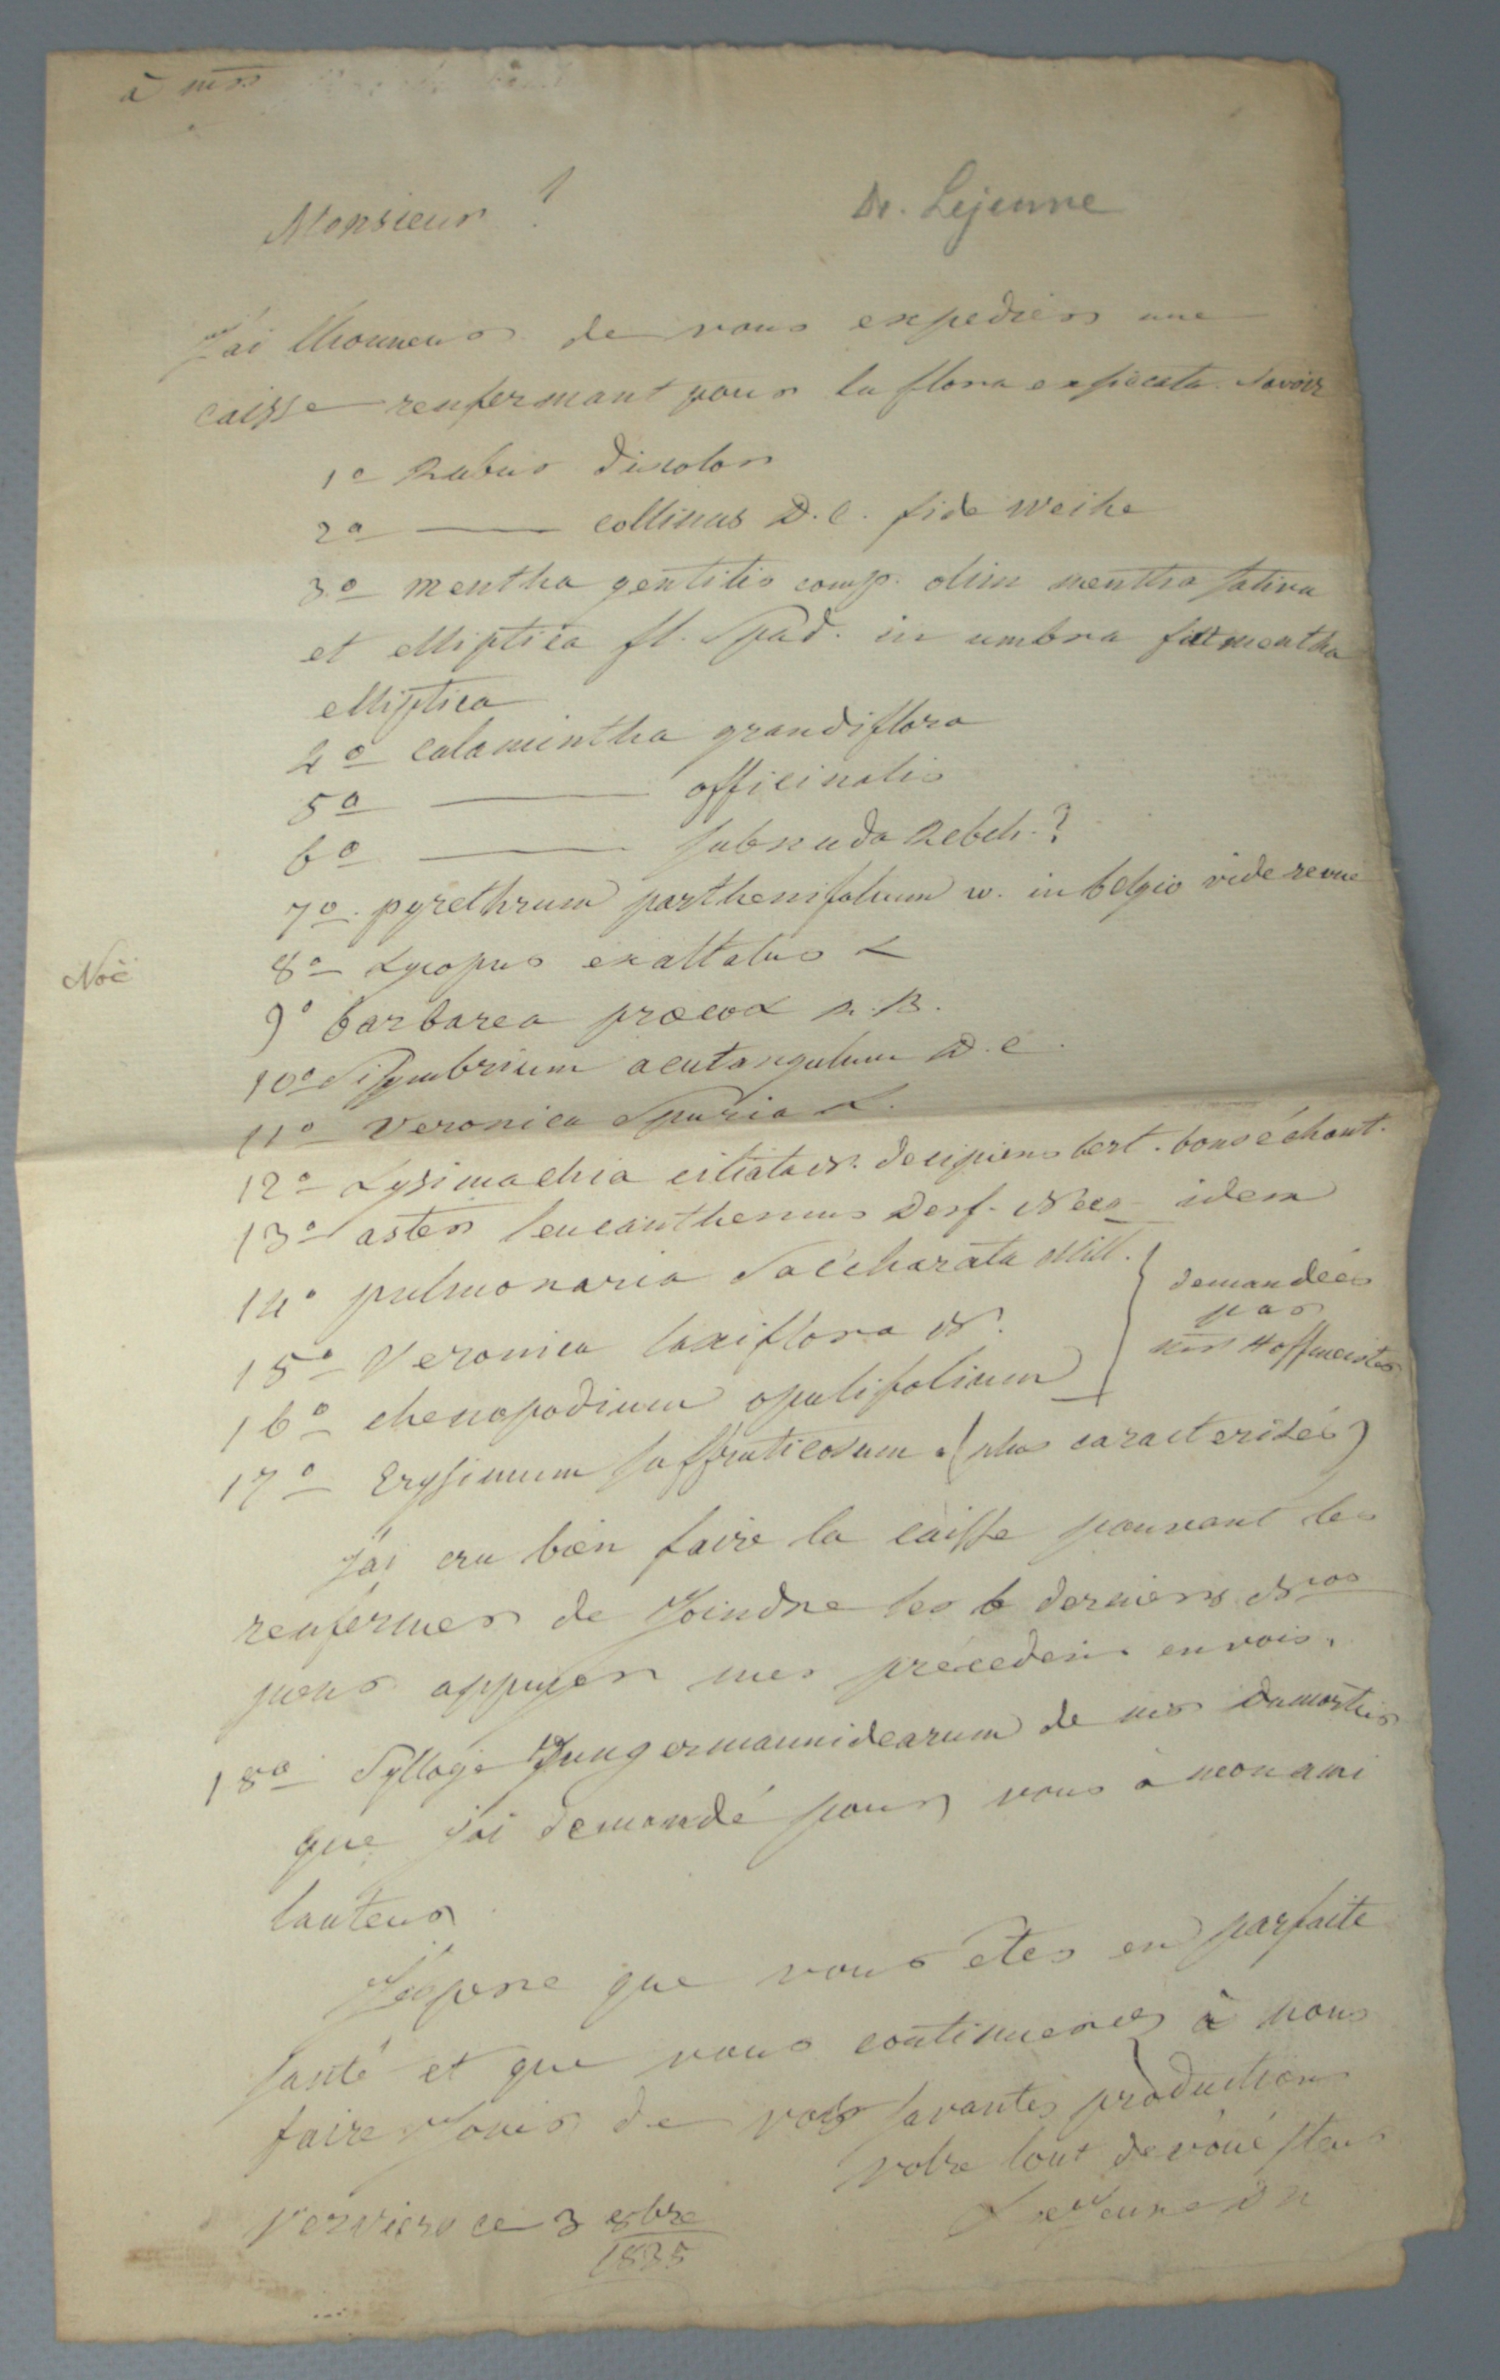 à mrs
Dr. Lejeune
Monsieur !
J'ai lhonneur de vous expedier une
caisse renfermant pour la flora exsiccata. Savoir
1o Rubus discolor
2o —— collinus D.C. fide Weihe
3o mentha gentilis comp. olim mentha sativa
et elliptica fl. Spad. in umbra fit mentha
elliptica
4o Calamintha grandiflora
5o —— officinalis
6o —— subnuda Rebch.?
7o. pyrethrum parthenifolium w. in belgio vide revue
Noë
8o Lycopus exaltatus L
9o barbarea præcox R.B.
10o Sisymbrium acutangulum D.C.
11o Veronica Spuria L.
12o Lysimachia ciliata decipiens bert. bons échant.
13o aster leucanthemus Desf. Nees idem
14o pulmonaria Saccharata Mill.
15o Veronica laxiflora N.
16o chenopodium opulifolium
demandées
par
mrs Hoffmeister
17o Erysimum suffruticosum. (plus caracterisés)
J'ai cru bien faire la caisse pouvant les
renfermer de Joindre les 6 derniers Nros
pour appuyer mes précedens envois.
18o Sylloge Jungermannidearum de mr Dumortier
que j'ai demandé pour vous à mon ami
lauteur
J'espere que vous etes en parfaite
santé et que vous continuerez à nous
faire Jouir de vos savantes productions
votre tout devoué Steur
LeJeune DM
Verviers ce 3 8bre
1835